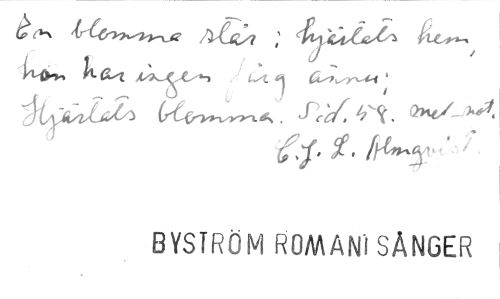 En blomma står i hjärtats hem,
hon har ingen färg ännu;
Hjärtats blomma. Sid. 58. med not.
C. J. L. Almqvist.
BYSTRÖM ROMANI SÅNGER